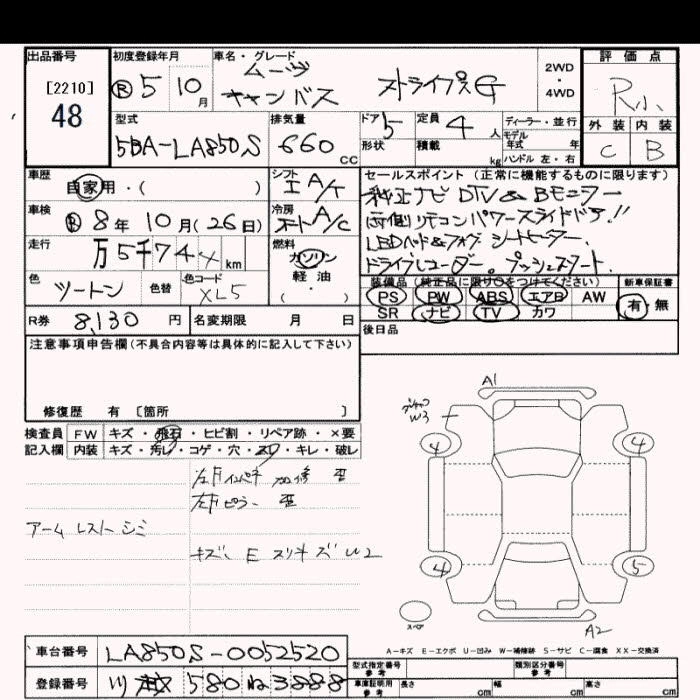 出品番号 初度登録年月 車名・グレード 評価点
[2210] Ⓡ 5 10月 ムーヴ ストライプスG 2WD・4WD R小
48 キャンバス 外装 内装
型式 排気量 ドア 定員 ディーラー・並行 C B
5BA-LA850S 660cc 5 4人 モデル年式 年
形状 積載 kg ハンドル 左・右
車歴 シフト セールスポイント (正常に機能するものに限ります)
自家用・( ) エ A/T 純正ナビ DTV & Bモニター
車検 冷房 両側リモコンパワースライドドア!!
R 8年 10月(26日) オート A/C LEDヘッド&フォグ シートヒーター
走行 燃料 ドライブレコーダー。プッシュスタート
万5千744km ガソリン 軽油・( )
色 色替 色コード 装備品(純正品に限り○をつけてください) 新車保証書
ツートン XL5 PS PW ABS エアB AW 有・無
SR ナビ TV カワ
R券 8,130円 名変期限 月 日 後日品
注意事項申告欄(不具合内容等は具体的に記入して下さい)
修復歴 有 〔箇所 〕
A1
W3
4 4
検査員 FW キズ・飛石・ヒビ割・リペア跡・×要
記入欄 内装 キズ・汚レ・コゲ・穴・スレ・キレ・破レ
左Fインパネ 加修 歪
左Fピラー 歪
アームレストシミ
キズ、E スリキズ W2
4 5
スペア A2
A-キズ E-エクボ U-凹み W-補修跡 S-サビ C-腐食 XX-交換済
車台番号 LA850S-0052520 型式指定番号 参考 類別区分番号 参考
登録番号 川越 580 ね 3888 車庫証明用 参考 長さ cm 幅 cm 高さ cm